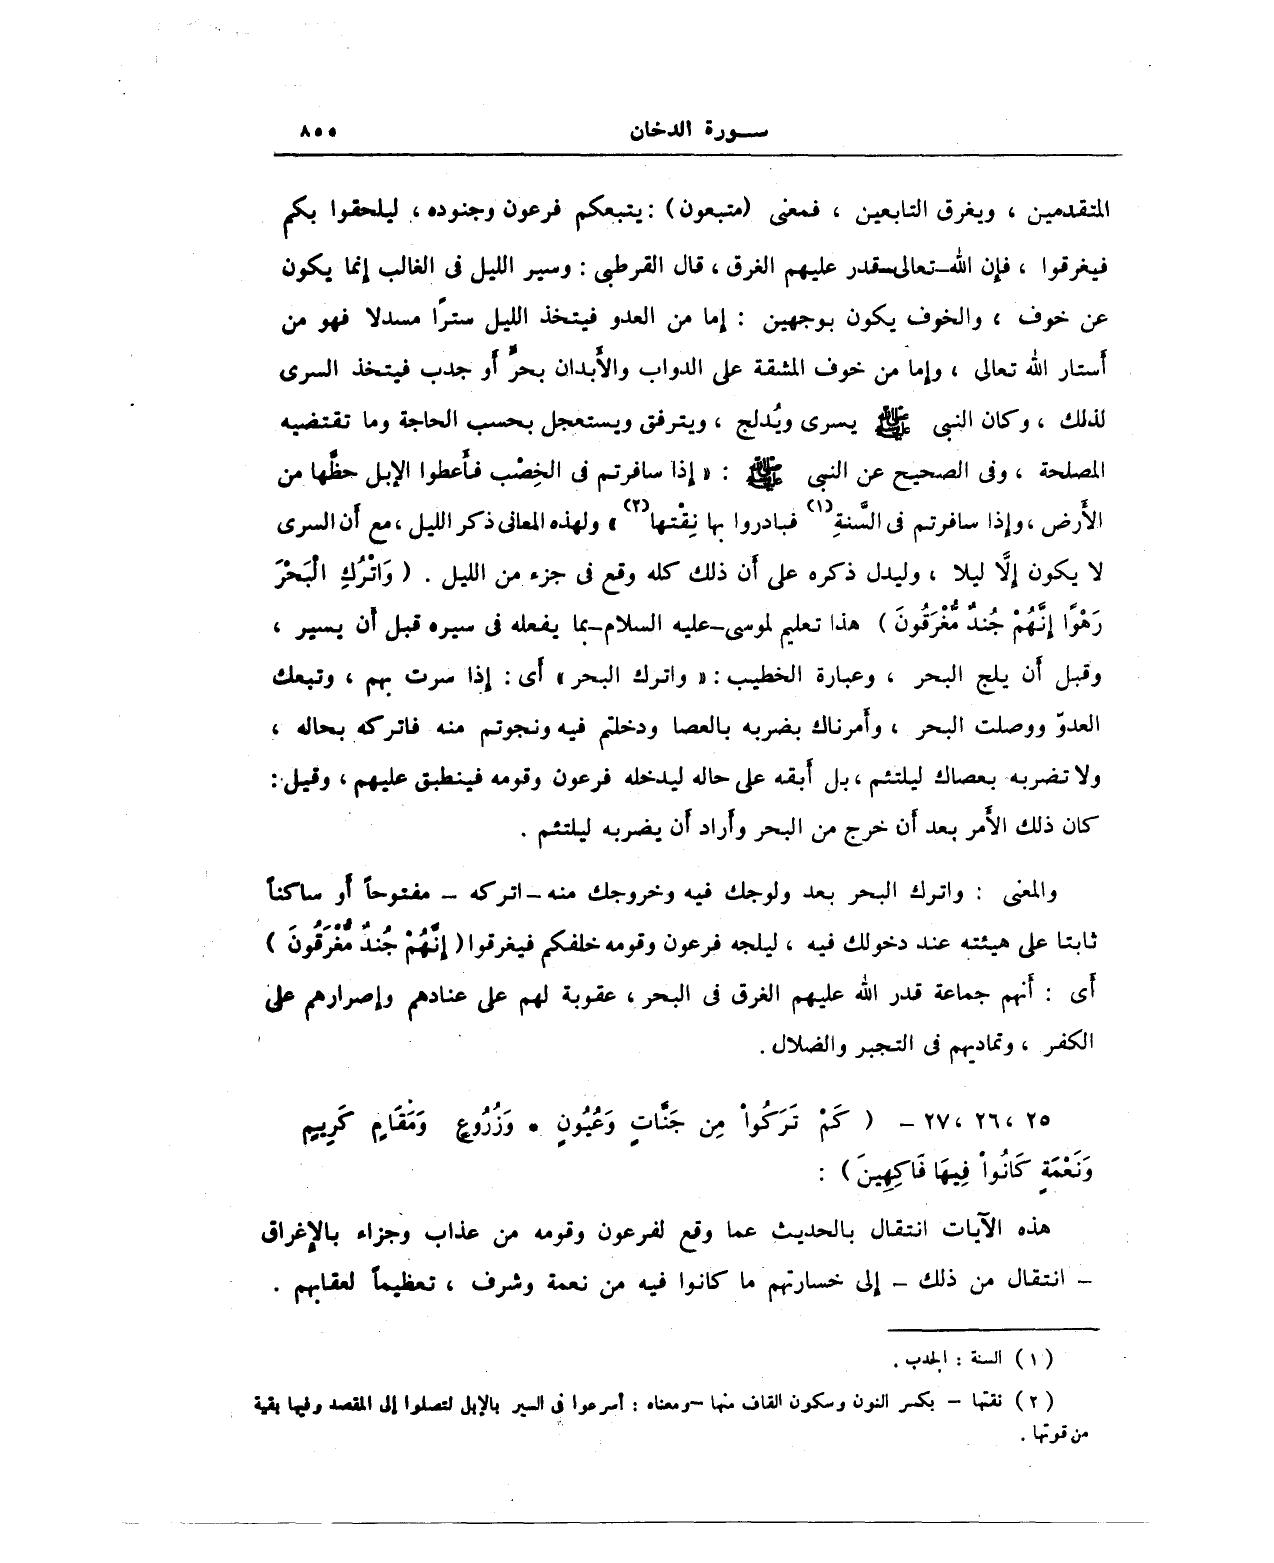 سورة الدخان ٨٥٥
المتقدمين ، ويغرق التابعين ، فمعنى (متبعون) : يتبعكم فرعون وجنوده ، ليلحقوا بكم
فيغرقوا ، فإن الله-تعالى-قدر عليهم الغرق ، قال القرطبى : وسير الليل فى الغالب إنما يكون
عن خوف ، والخوف يكون بوجهين : إما من العدو فيتخذ الليل سترًا مسدلا فهو من
أستار الله تعالى ، وإما من خوف المشقة على الدواب والأبدان بحرٍّ أو جدب فيتخذ السرى
لذلك ، وكان النبى ﷺ يسرى ويُدلج ، ويترفق ويستعجل بحسب الحاجة وما تقتضيه
المصلحة ، وفى الصحيح عن النبى ﷺ : « إذا سافرتم فى الخِصْب فأعطوا الإبل حظَّها من
الأرض ، وإذا سافرتم فى السَّنةِ(١) فبادروا بها نِقْتها(٢) » ولهذه المعانى ذكر الليل ، مع أن السرى
لا يكون إلَّا ليلا ، وليدل ذكره على أن ذلك كله وقع فى جزء من الليل . ( وَاتْرُكِ الْبَحْرَ
رَهْوًا إِنَّهُمْ جُندٌ مُّغْرَقُونَ ) هذا تعليم لموسى-عليه السلام-بما يفعله فى سيره قبل أن يسير ،
وقبل أن يلج البحر ، وعبارة الخطيب : « واترك البحر » أى : إذا سرت بهم ، وتبعك
العدوّ ووصلت البحر ، وأمرناك بضربه بالعصا ودخلتم فيه ونجوتم منه فاتركه بحاله ،
ولا تضربه بعصاك ليلتئم ، بل أبقه على حاله ليدخله فرعون وقومه فينطبق عليهم ، وقيل :
كان ذلك الأمر بعد أن خرج من البحر وأراد أن يضربه ليلتئم .
والمعنى : واترك البحر بعد ولوجك فيه وخروجك منه - اتركه - مفتوحاً أو ساكناً
ثابتا على هيئته عند دخولك فيه ، ليلجه فرعون وقومه خلفكم فيغرقوا ( إِنَّهُمْ جُندٌ مُّغْرَقُونَ )
أى : أنهم جماعة قدر الله عليهم الغرق فى البحر ، عقوبة لهم على عنادهم وإصرارهم على
الكفر ، وتماديهم فى التجبر والضلال .
٢٥ ،٢٦ ،٢٧ - ( كَمْ تَرَكُواْ مِن جَنَّاتٍ وَعُيُونٍ * وَزُرُوعٍ وَمَقَامٍ كَرِيمٍ
وَنَعْمَةٍ كَانُواْ فِيهَا فَاكِهِينَ ) :
هذه الآيات انتقال بالحديث عما وقع لفرعون وقومه من عذاب وجزاء بالإغراق
- انتقال من ذلك - إلى خسارتهم ما كانوا فيه من نعمة وشرف ، تعظيماً لعقابهم .
( ١ ) السنة : الجدب .
( ٢ ) نقتها - بكسر النون وسكون القاف منها -ومعناه : أسرعوا فى السير بالإبل لتصلوا إلى المقصد وفيها بقية
من قوتها .